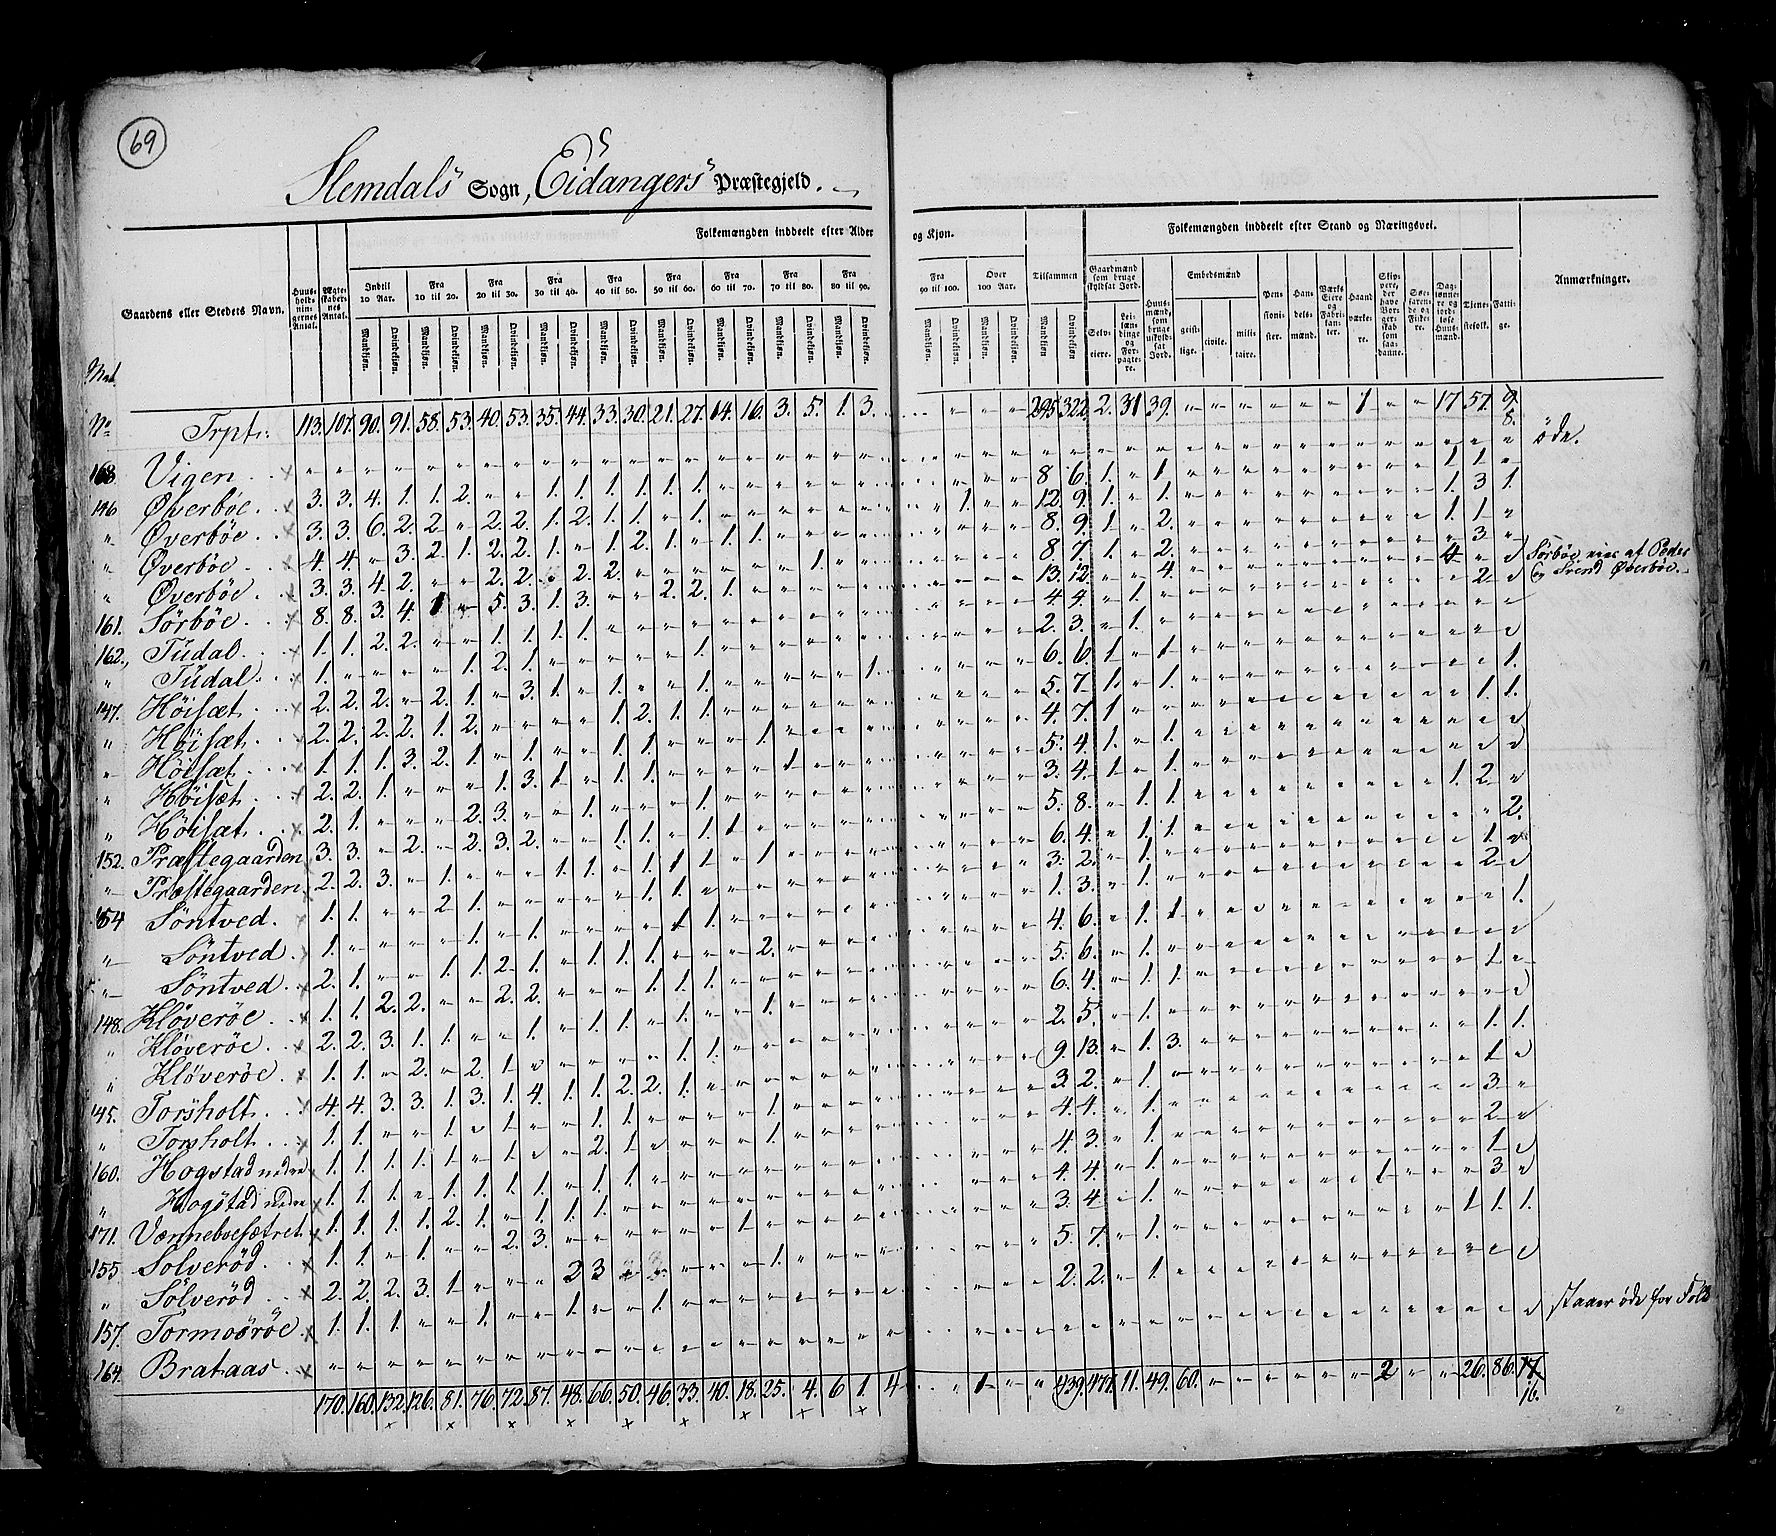 69
Slemdals Sogn, Eidangers Præstegjeld.
Folkemængden inddeelt efter Alder og Kjøn. Tilsammen Folkemængden inddeelt efter Stand og Næringsvei.
Gaardens eller Stedets Navn. Huus-holdningernes Antal. Ægteskabernes Antal. Indtil 10 Aar. Fra 10 til 20. Fra 20 til 30. Fra 30 til 40. Fra 40 til 50. Fra 50 til 60. Fra 60 til 70. Fra 70 til 80. Fra 80 til 90. Fra 90 til 100. Over 100 Aar. Gaardmænd som bruge skyldsat Jord. Embedsmænd Anmærkninger.
Mandkjøn. Qvindekjøn. Selveiere. Leilændinge og Forpagtere. Huusmænd, som bruge uskyldsat Jord. geistlige. civile. militaire. Pensionister. Handelsmænd. Værks Eiere og Fabrikanter. Haandværkere. Skippere, der have Borgerskab som saadanne. Søefarende og Fiskere. Daglønnere og jordløse Huusmænd. Tjenestefolk. Fattige.
No Trpt: 113. 107. 90. 91. 58. 53. 40. 53. 35. 44. 33. 30. 21. 27. 14. 16. 3. 5. 1. 3. 295 322 2. 31 39. 1 17 57. 9. 8.
168 Vigen øde.
146 Øverbøe 3. 3. 4. 1. 1. 2. 1. 1. 1. 1. 1. 1. 8 6. 1. 1. 1. 1.
" Øverbøe 3. 3. 6. 2. 2 2. 2. 1. 2. 1. 1. 1. 1. 12 9. 1. 1. 1. 3 1.
" Øverbøe 4. 4. 3. 2. 1. 2. 2. 1. 1. 2. 1. 1. 1. 8. 9. 1. 2. 1. 1.
" Øverbøe 3. 3. 4. 2. 2. 2. 2. 2. 1. 8 7. 1. 2. 3
161. Sörbøe 8. 8. 3. 4. 1. 5. 3. 1. 3. 2. 2. 1. 13. 12. 4. 4 Sörbøe eies af Peder og Svend Øverbøe.
162. Tudal 1. 1. 2. 2. 1. 1. 1. 1. 4. 4. 1. 2
" Tudal 1. 1. 2. 1. 1. 2. 3. 1.
147. Höisæt 2. 2. 2. 2. 1. 3. 1. 1. 1. 1. 6. 6. 1. 1.
" Höisæt 2. 2. 2. 2. 1. 2. 1. 2. 1. 1. 1. 5. 7. 1. 1. 1.
" Höisæt 1. 1. 1. 3. 2. 1. 1. 1. 1. 1 4. 7. 1 1. 1.
" Höisæt 2. 2. 1. 1. 3. 1 1. 1. 5. 4. 1. 1.
" Höisæt 2. 1. 2. 3. 1. 1. 3. 4. 1 1.
152. Præstegaarden 3. 3. 2. 2. 3. 2. 1. 1. 1. 1 5. 8. 1. 1. 1. 2.
" Præstegaarden 2. 2. 3. 1. 1. 1. 1. 1 1 1. 6. 4. 1. 1. 2.
154 Söntved. 1. 1. 2 1. 1. 1. 3. 2. 1. 1.
" Söntved 1. 1. 1. 1 1. 1. 3. 1. 2.
" Söntved 2. 1. 1. 1. 2 1. 1. 1. 1. 2. 4. 6. 1. 1 1.
148. Klöveröe 1. 1. 2. 2. 2. 2. 1. 1. 1. 5. 6. 1.
" Klöveröe 2. 2. 3. 1. 1. 1. 1. 1. 1. 1. 1. 6. 4. 1. 1. 1.
" Klöveröe 1. 1. 2. 2. 1 1. 1. 2. 5. 1.
145. Torsholt 4. 4. 3. 3. 1. 3. 1. 4. 1. 1. 2. 2. 1. 9. 13. 1. 3. 1. 1.
" Torsholt 1. 1. 1. 1. 1. 1. 1. 3 2. 1. 1.
160. Hogstad nedre 1. 1. 1. 1. 1. 1. 2. 1. 1. 4. 4. 1. 3.
" Hogstad nedre 1. 1. 1. 1. 1. 1. 1. 1. 1. 4. 3. 1. 2.
171. Vønnebvesætret 1. 1. 1. 1. 2. 1. 1. 1. 1. 1. 4. 4. 1. 1.
155 Solveröd 1. 1. 1. 2. 3. 3. 4. 1. 1. 3.
" Sölveröd 2. 2. 2. 3. 1. 2 3 1. 5. 7. 1. 1. 1. 1.
157. Tormoöröe 1. 1. 1. 1. 1. 1. 2. 2. 1.
164. Brataas staaer øde for Folk
170. 160. 132. 126. 81. 76. 72. 87. 48. 66. 50. 46. 33. 40. 18. 25. 4. 6 1. 4 1 439. 477. 11. 49. 60. 2 26. 86. 17. 16.